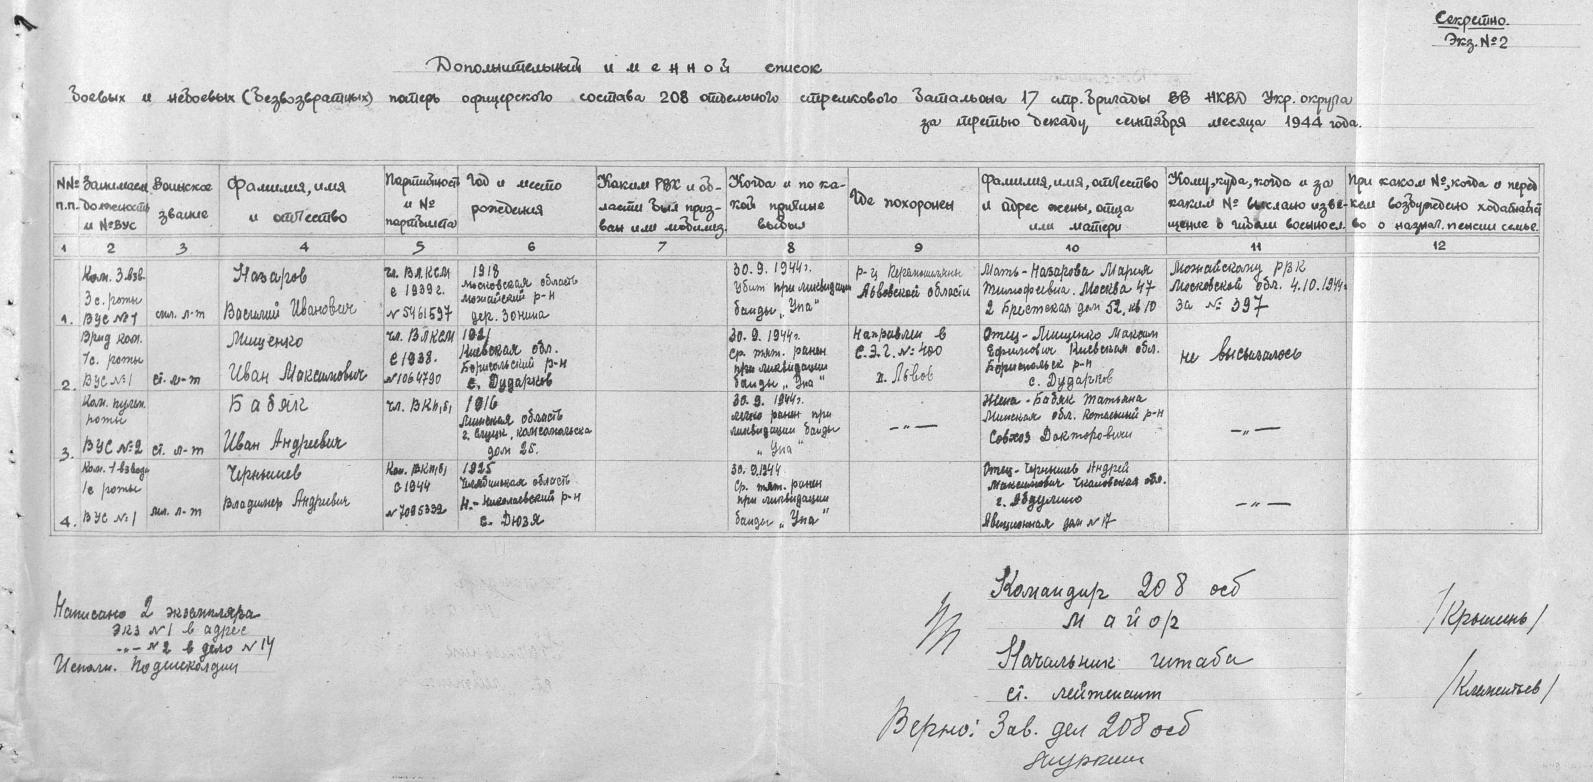 Секретно.
Экз. № 2
Дополнительный именной список
боевых и небоевых (безвозвратных) потерь офицерского состава 208 отдельного стрелкового батальона 17 стр. бригады ВВ НКВД Укр. округа
за третью декаду сентября месяца 1944 года.
№№ п.п.
Занимаем. должность и № ВУС
Воинское звание
Фамилия, имя и отчество
Партийность и № партбилета
Год и место рождения
Каким РВК и области был призван или мобилиз.
Когда и по какой причине выбыл
Где похоронен
Фамилия, имя, отчество и адрес жены, отца или матери
Кому, куда, когда и за каким № выслано извещение о гибели военносл.
При каком №, когда и перед кем возбуждено ходатайство о назнач. пенсии семье.
1 2 3 4 5 6 7 8 9 10 11 12
1.
Ком. 3 взв.
3 с. роты
ВУС № 1
мл. л-т
Назаров
Василий Иванович
Чл. ВЛКСМ
с 1939 г.
№ 5461597
1918
Московская область
Можайский р-н
дер. Зонина
30.9.1944 г.
Убит при ликвидации
банды „Упа“
р-ц
Львовской области
Мать - Назарова Мария
Тимофеевна. Москва 47
2 Брестская дом 52, кв 10
Можайскому РВК
Московской обл. 4.10.1944 г.
за № 397
2.
Врид ком.
1 с. роты
ВУС № 1
ст. л-т
Мищенко
Иван Максимович
Чл. ВЛКСМ
с 1938.
№ 1064790
1921
Киевская обл.
Борисольский р-н
с. Дударков
30.9. 1944 г.
Ср. тяж. ранен
при ликвидации
банды „Упа“
Направлен в
С.Э.Г. № 400
г. Львов
Отец - Мищенко Максим
Ефимович Киевская обл.
Борисполск р-н
с. Дударков
не высылалось
3.
Ком. пульт.
роты
ВУС № 2
ст. л-т
Бабяк
Иван Андреевич
Чл. ВКП(б)
1916
Минская область
г. Слуцк, Комсомольска
дом 25.
30.9. 1944 г.
легко ранен при
ликвидации банды
„Упа“
— „ —
Жена - Бабяк Татьяна
Минская обл. р-н
Совхоз Докторовичи
— „ —
4.
Ком. 1 взвода
1 с роты
ВУС № 1
мл. л-т
Чернышев
Владимир Андреевич
Кан. ВКП(б)
с 1944
№ 7095332
1925
Челябинская область
Н.-Николаевский р-н
с. Дюзя
30.9.1944
Ср. тяж. ранен
при ликвидации
банды „Упа“
Отец - Чернышев Андрей
Максимович Чкаловская обл.
г. Абдулино
Авиционная дом № 17
— „ —
Написано 2 экземпляра
экз № 1 в адрес
—„— № 2 в дело № 14
Исполн.
Командир 208 осб
майор
/Крышень/
Начальник штаба
ст. лейтенант
/Клементьев/
Верно: Зав. дел 208 осб